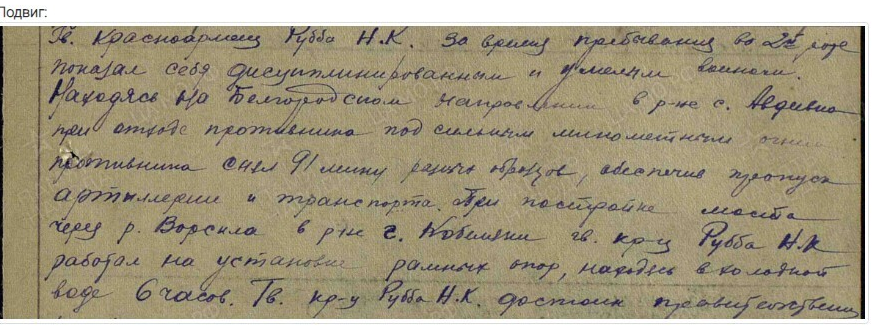 Подвиг:
Гв. красноармеец Рубба Н.К. за время пребывания во 2й роте
показал себя дисциплинированным и умелым воином.
Находясь на Белгородском направлении в р-не с. Авдеевка
при отходе противника под сильным минометным огнем
противника снял 91 мину разных образцов, обеспечив пропуск
артиллерии и транспорта. При постройке моста
через р. Ворскла в р-не г. Кобеляки гв. кр-ц Рубба Н.К.
работал на установке рамных опор, находясь в холодной
воде 6 часов. Гв. кр-ц Рубба Н.К. достоин правительственн